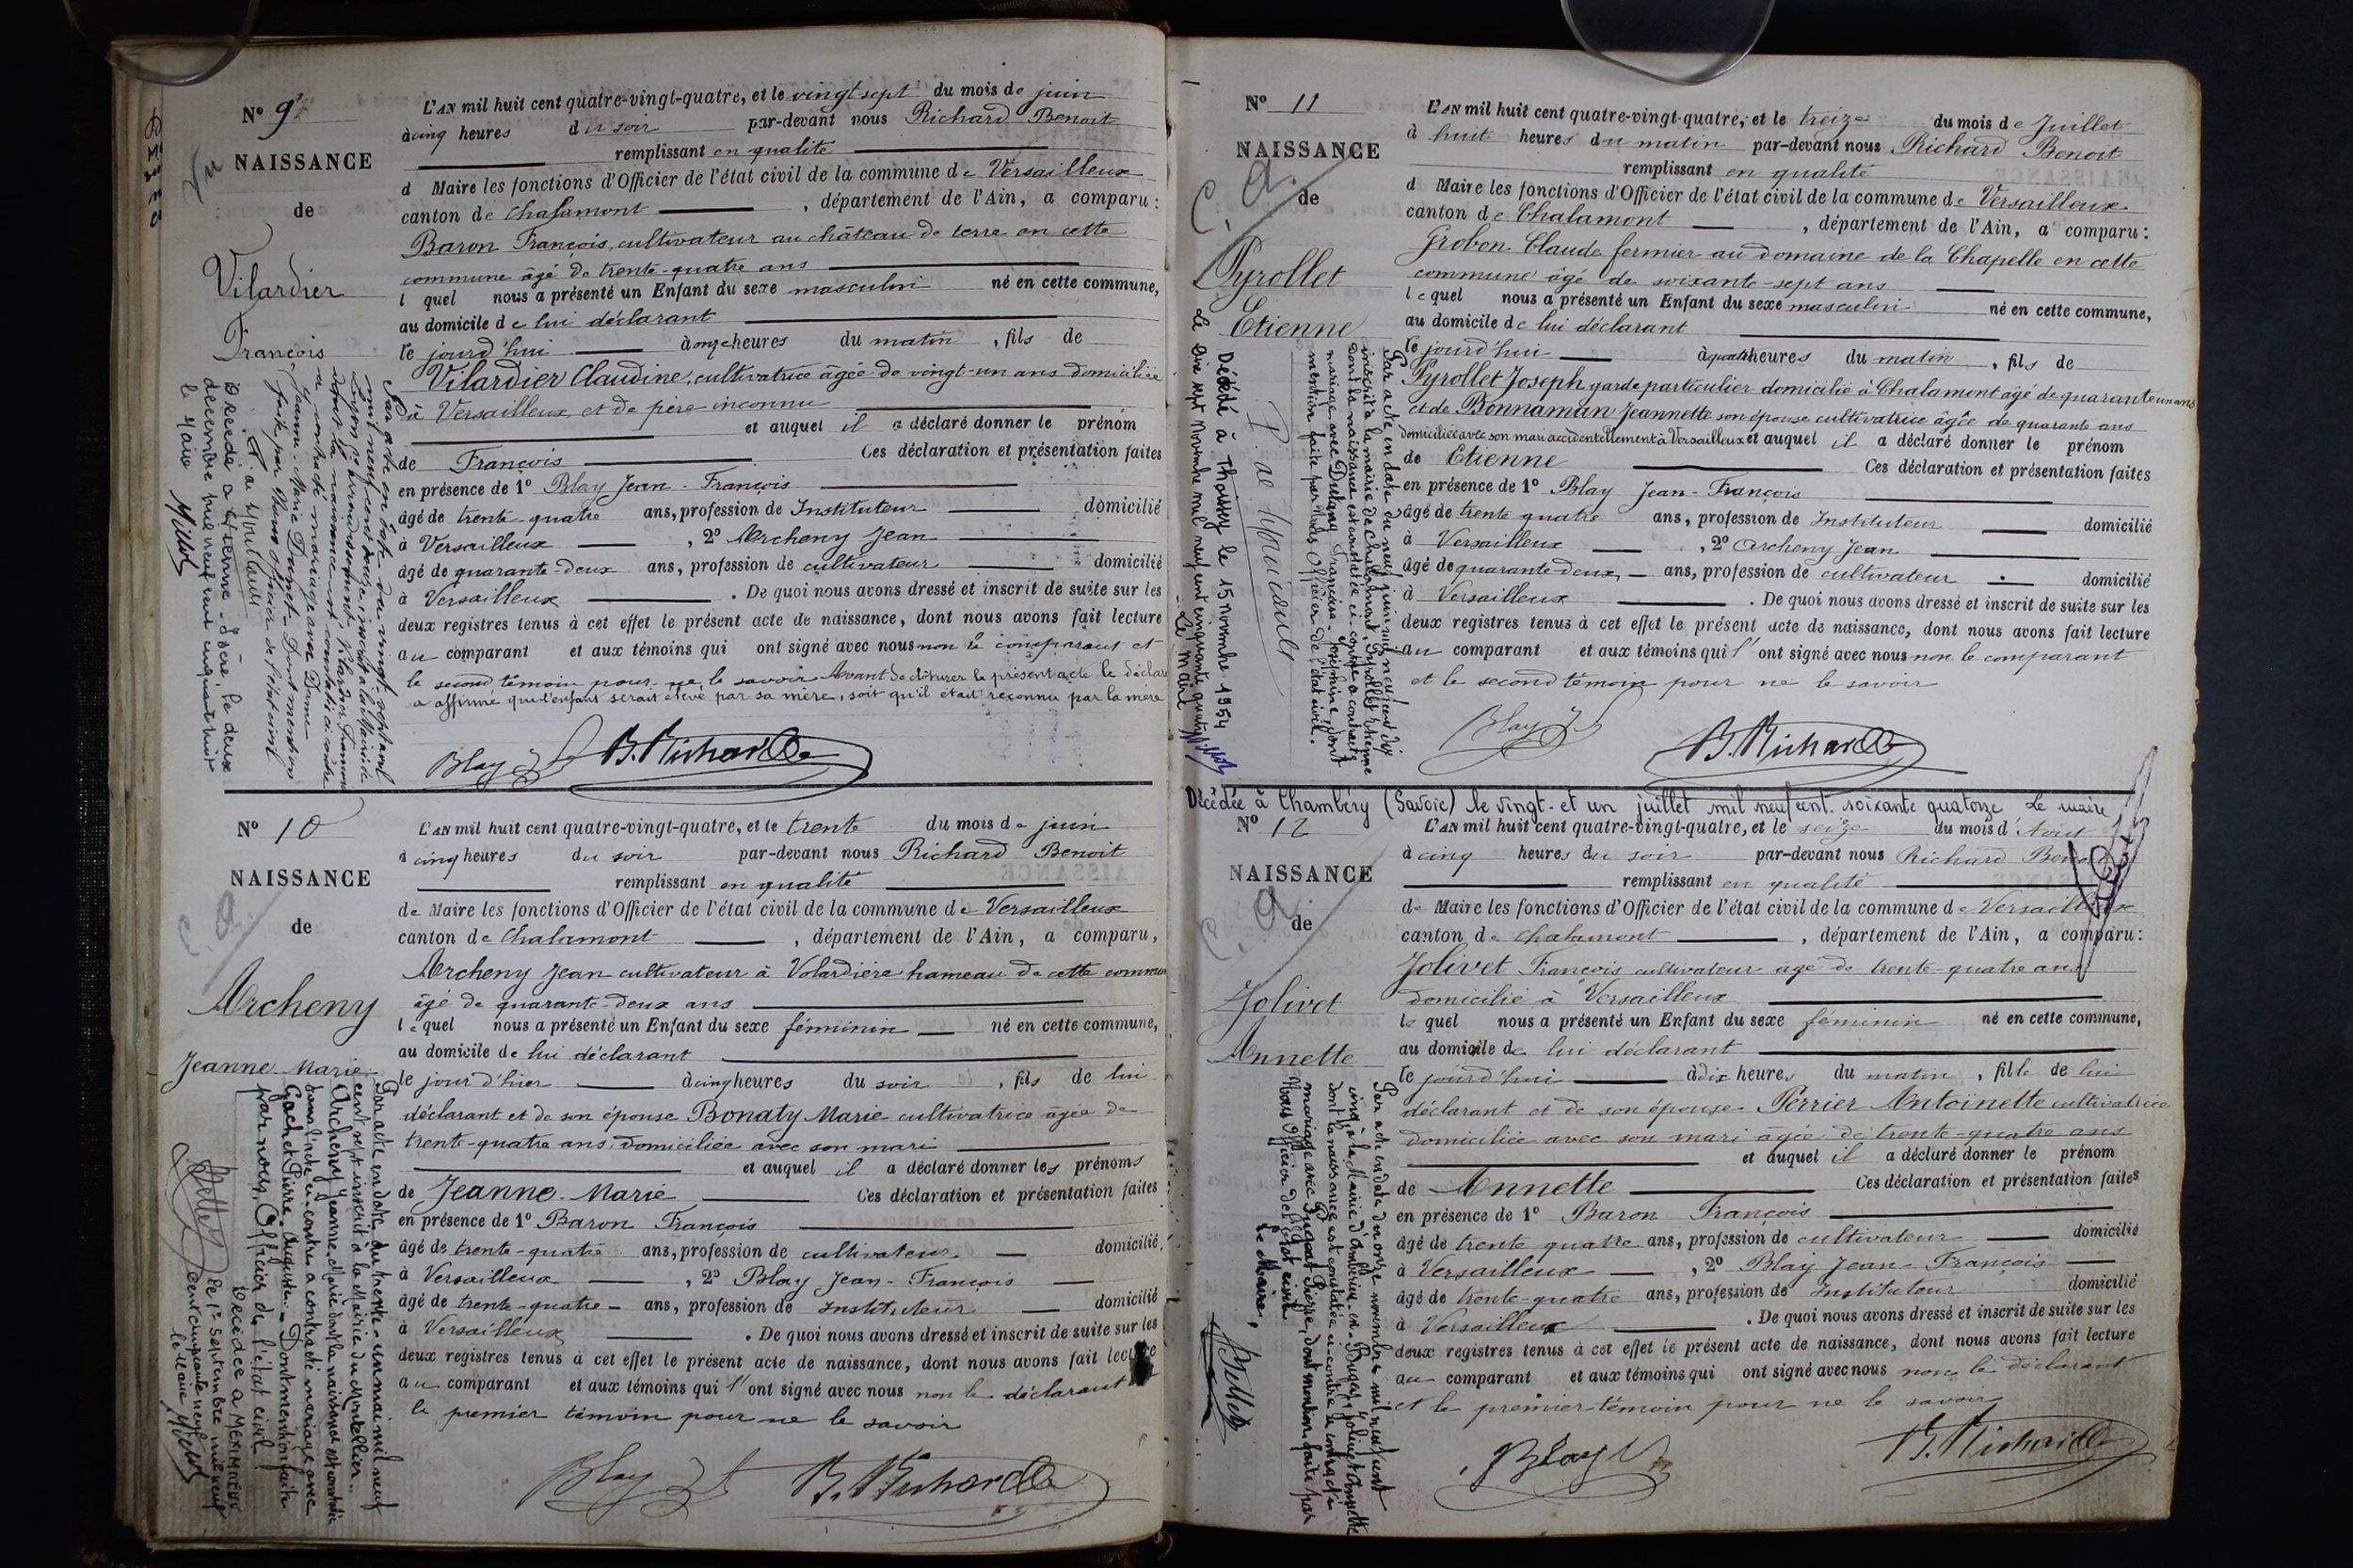 Nº 9
NAISSANCE
de
Vilardier
François
L'AN mil huit cent quatre-vingt-quatre, et le vingt sept du mois de juin
à cinq heures du soir par-devant nous Richard Benoit
remplissant en qualité
d Maire les fonctions d'Officier de l'état civil de la commune de Versailleux
canton de Chalamont, département de l'Ain, a comparu :
Baron François, cultivateur au château de terre en cette
commune âgé de trente-quatre ans
l quel nous a présenté un Enfant du sexe masculin né en cette commune,
au domicile de lui déclarant
le jourd'hui à onze heures du matin, fils de
Vilardier Claudine, cultivatrice âgée de vingt-un ans domiciliée
à Versailleux et de père inconnu
et auquel il a déclaré donner le prénom
de François Ces déclaration et présentation faites
en présence de 1º Blay Jean-François
âgé de trente-quatre ans, profession de Instituteur domicilié
à Versailleux, 2º Archeny Jean
âgé de quarante-deux ans, profession de cultivateur domicilié
à Versailleux. De quoi nous avons dressé et inscrit de suite sur les
deux registres tenus à cet effet le présent acte de naissance, dont nous avons fait lecture
au comparant et aux témoins qui ont signé avec nous non le comparant et
le second témoin pour ne le savoir Avant de clôturer le présent acte le déclar
a affirmé que l'enfant serait élevé par sa mère, soit qu'il était reconnu par la mère
Blay B. Richard
Par acte en date du vingt-sept avril
mil neuf cent douze, inscrit à la Mairie de
Lyon, Vilardier François
dont la naissance est constatée ci-contre
a contracté mariage avec Dame
Jeanne-Marie
faite par Nous officier de l'état civil
Décédé à Vienne-Isère, le deux
décembre mil neuf cent cinquante huit
le Maire
Nº 10
NAISSANCE
de
Archeny
Jeanne Marie
L'AN mil huit cent quatre-vingt-quatre, et le trente du mois de juin
à cinq heures du soir par-devant nous Richard Benoit
remplissant en qualité
de Maire les fonctions d'Officier de l'état civil de la commune de Versailleux
canton de Chalamont, département de l'Ain, a comparu,
Archeny Jean cultivateur à Volardière hameau de cette commun
âgé de quarante-deux ans
lequel nous a présenté un Enfant du sexe féminin né en cette commune,
au domicile de lui déclarant
le jour d'hier à cinq heures du soir, fils de lui
déclarant et de son épouse Bonaty Marie cultivatrice âgée de
trente-quatre ans, domiciliée avec son mari
et auquel il a déclaré donner les prénoms
de Jeanne-Marie Ces déclaration et présentation faites
en présence de 1º Baron François
âgé de trente-quatre ans, profession de cultivateur domicilié
à Versailleux, 2º Blay Jean-François
âgé de trente-quatre ans, profession de Instituteur domicilié
à Versailleux. De quoi nous avons dressé et inscrit de suite sur les
deux registres tenus à cet effet le présent acte de naissance, dont nous avons fait lecture
au comparant et aux témoins qui l'ont signé avec nous non le déclarant et
le premier témoin pour ne le savoir
Blay B. Richard
Par acte en date du trente-un mai mil neuf
cent sept inscrit à la Mairie du Montellier
Archeny Jeanne-Marie dont la naissance est constatée
dans l'acte ci-contre a contracté mariage avec
Gachet Pierre-Auguste. Dont mention faite
par nous, Officier de l'état civil.
Décédée à
le 1er septembre mil neuf
cent cinquante neuf
le Maire
Nº 11
NAISSANCE
C. A.
de
Pyrollet
Etienne
L'AN mil huit cent quatre-vingt-quatre, et le treize du mois de Juillet
à huit heures du matin par-devant nous Richard Benoit
remplissant en qualité
d Maire les fonctions d'Officier de l'état civil de la commune de Versailleux
canton de Chalamont, département de l'Ain, a comparu :
Grobon Claude fermier au domaine de la Chapelle en cette
commune âgé de soixante-sept ans
lequel nous a présenté un Enfant du sexe masculin né en cette commune,
au domicile de lui déclarant
le jourd'hui à quatre heures du matin, fils de
Pyrollet Joseph garde particulier domicilié à Chalamont âgé de quarante un ans
et de Bonnaman Jeannette son épouse cultivatrice âgée de quarante ans
domiciliée avec son mari accidentellement à Versailleux et auquel il a déclaré donner le prénom
de Etienne Ces déclaration et présentation faites
en présence de 1º Blay Jean-François
âgé de trente quatre ans, profession de Instituteur domicilié
à Versailleux, 2º Archeny Jean
âgé de quarante-deux ans, profession de cultivateur domicilié
à Versailleux. De quoi nous avons dressé et inscrit de suite sur les
deux registres tenus à cet effet le présent acte de naissance, dont nous avons fait lecture
au comparant et aux témoins qui l'ont signé avec nous non le comparant
et le second témoin pour ne le savoir
Blay B. Richard
Par acte en date du neuf juin mil neuf cent dix
inscrit à la mairie de Chalamont, Pyrollet Etienne
dont la naissance est constatée ci-contre a contracté
mariage avec Françoise Joséphine, dont
mention faite par Nous Officier de l'état civil.
Décédé à Thoissey le 15 novembre 1954
Le Dix sept Novembre mil neuf cent cinquante quatre
Le Maire
Décédée à Chambéry (Savoie) le vingt-et un juillet mil neuf cent soixante quatorze Le maire
Nº 12
NAISSANCE
C. A.
de
Jolivet
Annette
L'AN mil huit cent quatre-vingt-quatre, et le seize du mois d'Août
à cinq heures du soir par-devant nous Richard Benoit
remplissant en qualité
de Maire les fonctions d'Officier de l'état civil de la commune de Versailleux
canton de Chalamont, département de l'Ain, a comparu :
Jolivet François cultivateur âgé de trente-quatre ans
domicilié à Versailleux
lequel nous a présenté un Enfant du sexe féminin né en cette commune,
au domicile de lui déclarant
le jourd'hui à dix heures du matin, fille de lui
déclarant et de son épouse Perrier Antoinette cultivatrice
domiciliée avec son mari âgée de trente-quatre ans
et auquel il a déclaré donner le prénom
de Annette Ces déclaration et présentation faites
en présence de 1º Baron François
âgé de trente quatre ans, profession de cultivateur domicilié
à Versailleux, 2º Blay Jean-François
âgé de trente-quatre ans, profession de Instituteur domicilié
à Versailleux. De quoi nous avons dressé et inscrit de suite sur les
deux registres tenus à cet effet le présent acte de naissance, dont nous avons fait lecture
au comparant et aux témoins qui ont signé avec nous non le déclarant
et le premier témoin pour ne le savoir
Blay B. Richard
Par acte en date du onze novembre mil neuf cent
cinq, à la Mairie d'Ambérieu-en-Bugey, Jolivet Annette
dont la naissance est constatée ci-contre a contracté
mariage avec Pierre, dont mention faite par
Nous Officier de l'Etat civil
Le Maire,